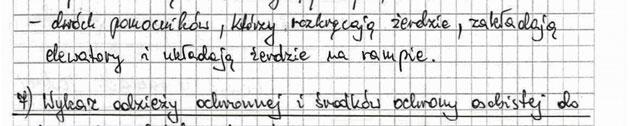 - dwóch pomocników, którzy rozkręcają żerdzie, zakładają
elewatory i układają żerdzie na rampie.
7) Wykaz odzieży ochronnej i środków ochrony osobistej do